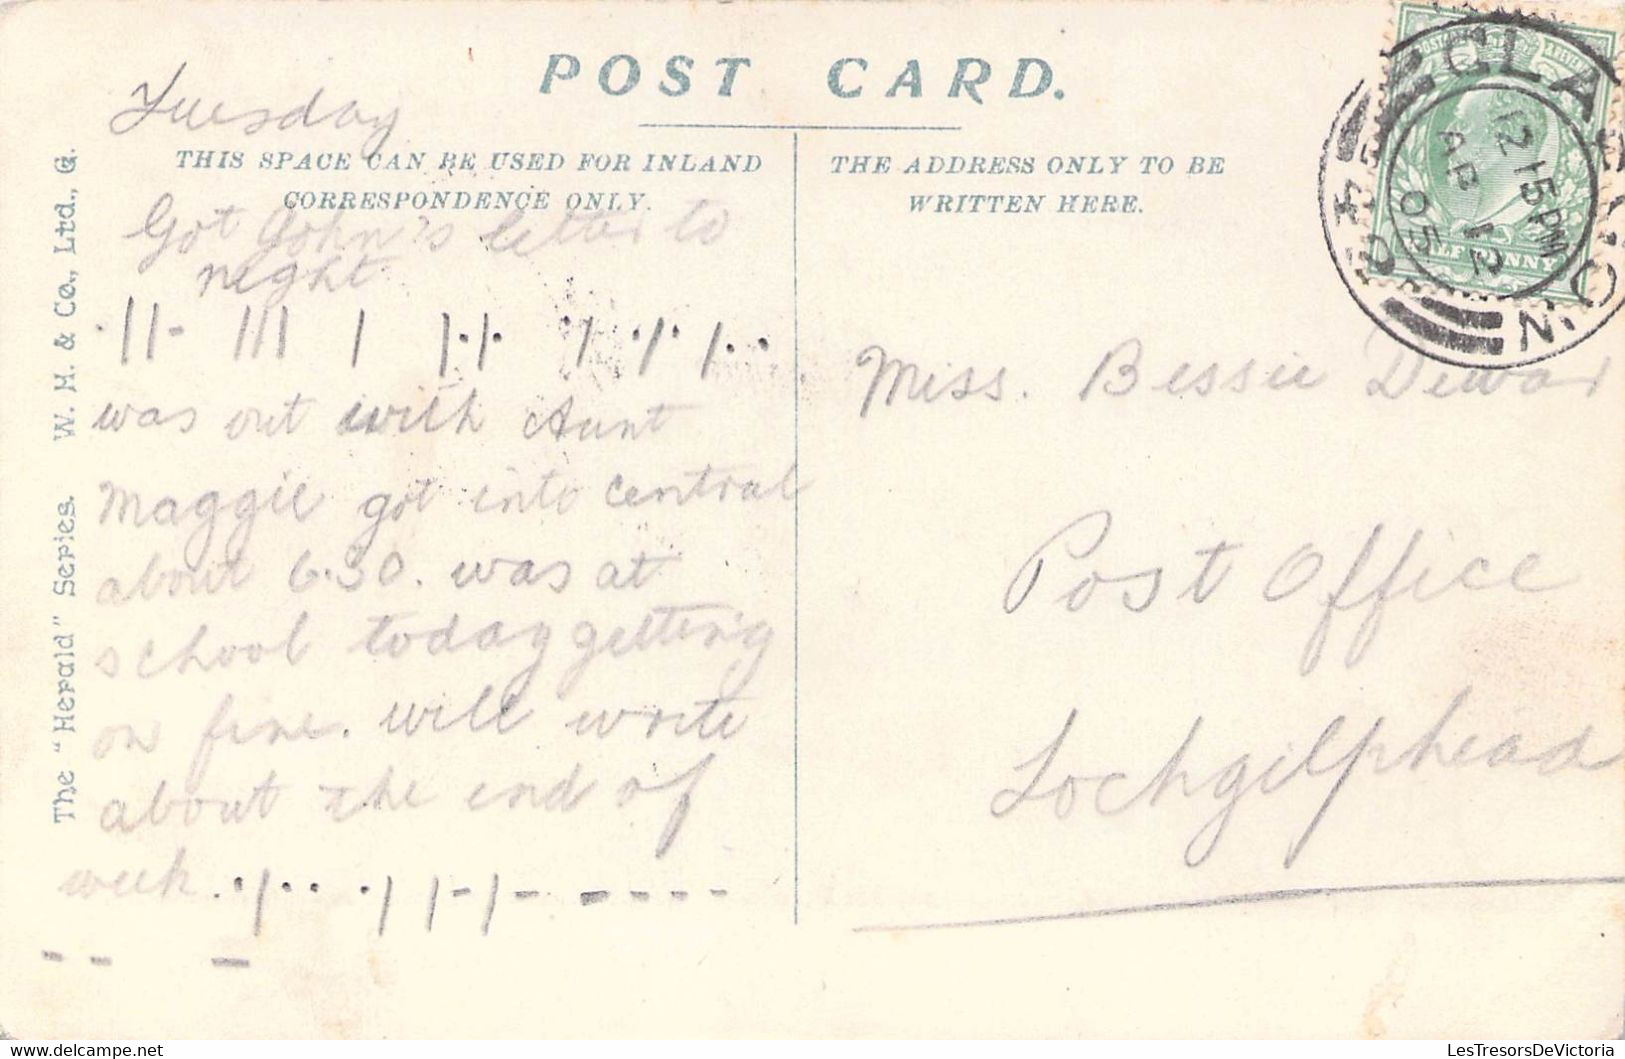 POST CARD.
Tuesday
THIS SPACE CAN BE USED FOR INLAND
CORRESPONDENCE ONLY.
Got John's letter to
night
·||- ||| | |·|· ·|· ·|· |··
was out with Aunt
Maggie got into central
about 6.30. was at
school today getting
on fine. will write
about the end of
week. ·|·· ·| |-|- ----
-- -
The "Herald" Series. W. H. & Co., Ltd., G.
THE ADDRESS ONLY TO BE
WRITTEN HERE.
Miss. Bessie Dewar
Post Office
Lochgilphead
GLASGOW
12 15 PM
AP 12
05
HALF PENNY
LesTresorsDeVictoria